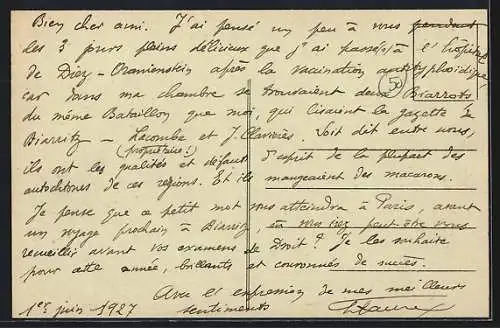 Bien cher ami. J'ai pensé un peu à vous pendant
les 3 jours pleins délicieux que j'ai passés à l'hôpital
de Diez-Oranienstein après la vaccination antityphoïdique,
car dans ma chambre se trouvaient deux Biarrots
50
du même Bataillon que moi, qui lisaient la gazette de
Biarritz - Lacombe et J. Soit dit entre nous,
(propriétaire!)
ils ont les qualités et défauts d'esprit de la plupart des
autochtones de ces régions. Et ils mangeaient des macarons.
Je pense que ce petit mot vous atteindra à Paris, avant
un voyage prochain à Biarritz, où vous irez peut être vous
recueillir avant vos examens de Droit? Je les souhaite
pour cette année, brillants et couronnés de succès.
Avec l'expression de mes meilleurs
1er juin 1927 sentiments